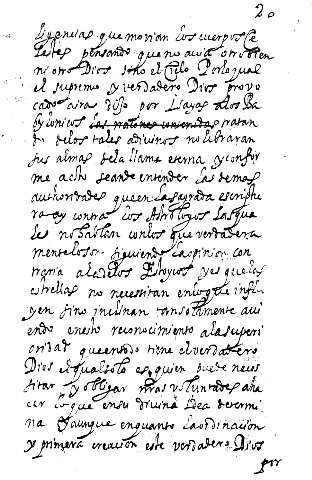 2.
ligencias que movian los cuerpos Ce
lestes pensando que no avia otro bien
ni otro Dios sino el Cielo Por lo qual
el supremo y verdadero Dios provo
cado a ira dijo por Isayas a los Ba
bylonicos las razones contenidas tratan
do de los tales adivinos no libraran
sus almas de la llama eterna y confor
me a esto se an de entender las demas
authoridades que en la sagrada escriptu
ra ay contra los Astrologos las qua
les no hablan con los que verdadera
mente los son siguiendo la opinion con
traria a la de los Estoycos y es que las
estrellas no necesitan en lo que influ
yen sino inclinan tan solamente avi
endo en esto reconocimiento a la superi
oridad que en todo tiene el verdadero
Dios el qual solo es quien puede neces
sitar y obligar nras voluntades a ha
cer lo que en su divina Idea determi
na Y aunque en quanto la ordinacion
y primera creacion este verdadero Dios
por